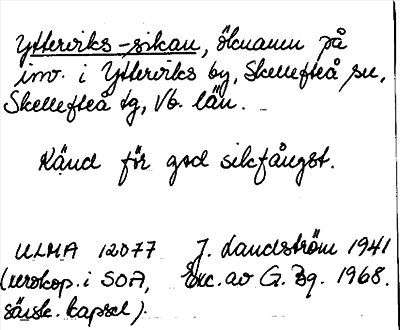 Ytterviks-sikan, öknamn på
inv. i Ytterviks by, Skellefteå sn,
Skellefteå tg, Vb. län.
Känd för god sikfångst.
ULMA 12077 J. Landström 1941
(xeroxkop. i SOA, Exc. av G. Bg. 1968.
särsk. kapsel).